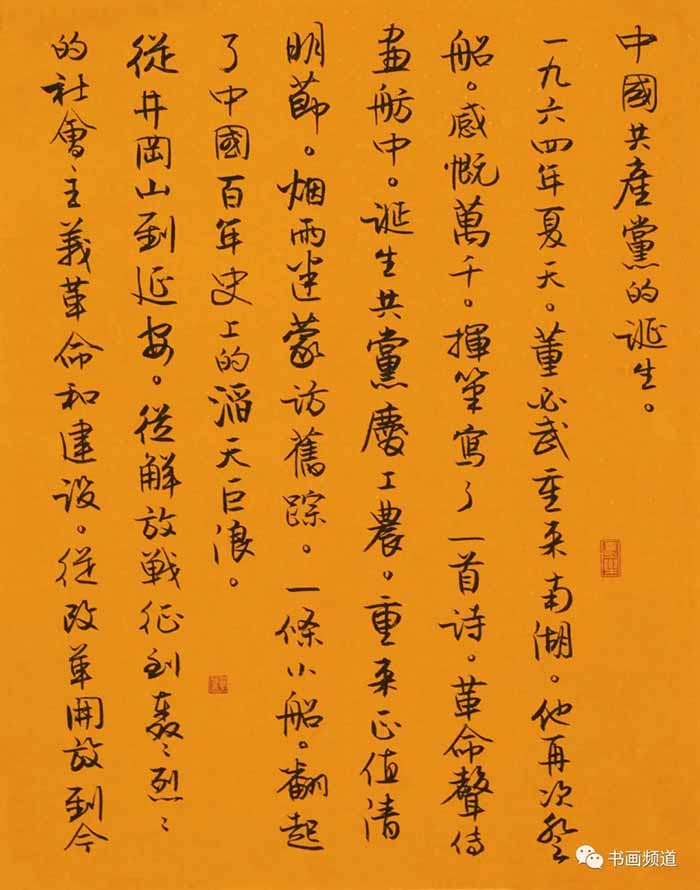 中國共產黨的誕生。
一九六四年夏天。董必武重来南湖。他再次登
船。感慨萬千。揮筆寫了一首詩。革命聲傳
畫舫中。誕生共黨慶工農。重来正值清
明節。烟雨迷蒙訪舊踪。一條小船。翻起
了中國百年史上的滔天巨浪。
從井岡山到延安。從解放戰征到轟〻烈〻
的社會主義革命和建設。從改革開放到今
书画频道